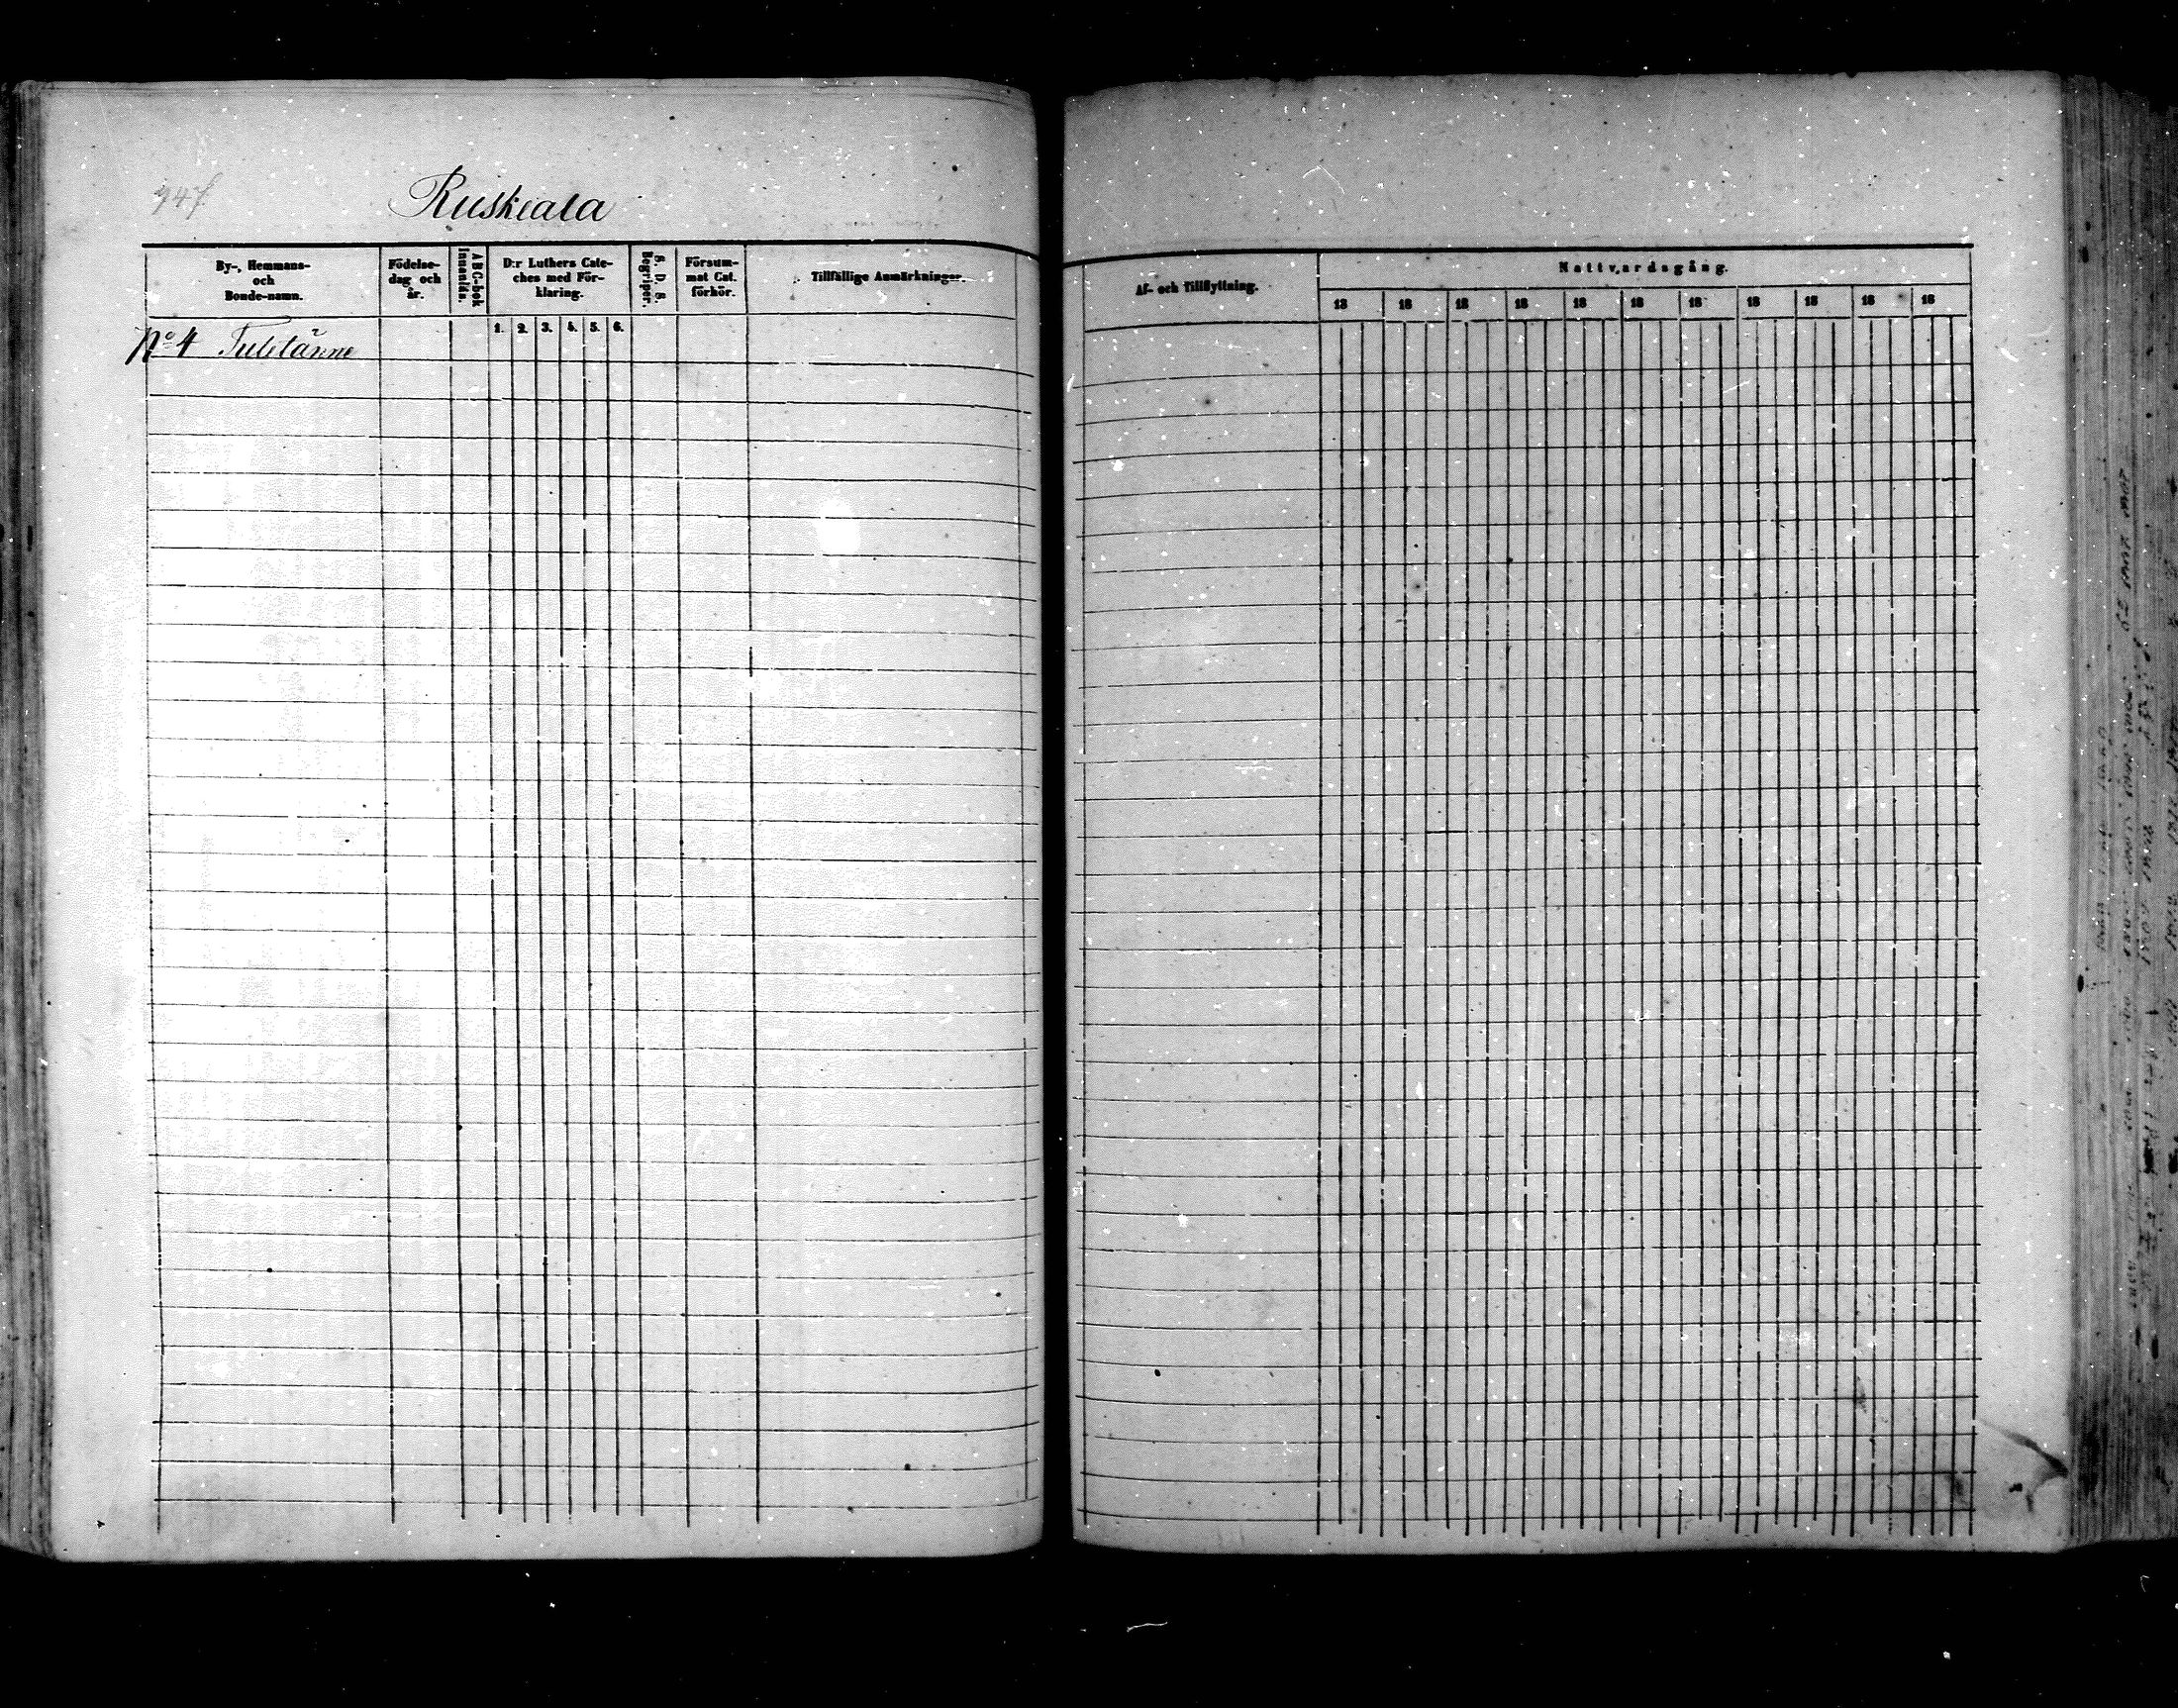 947.
Ruskiala
By-, Hemmans-
och
Bonde-namn.
Födelse-
dag och
år.
ABC-bok
Innanläs.
D:r Luthers Cate-
ches med För-
klaring.
S. D. S.
Begriper.
Försum-
mat Cat.
förhör.
Tillfällige Anmärkningar.
1. 2. 3. 4. 5. 6.
No 4
Af- och Tillflyttning.
Nattvardsgång.
18 18 18 18 18 18 18 18 18 18 18